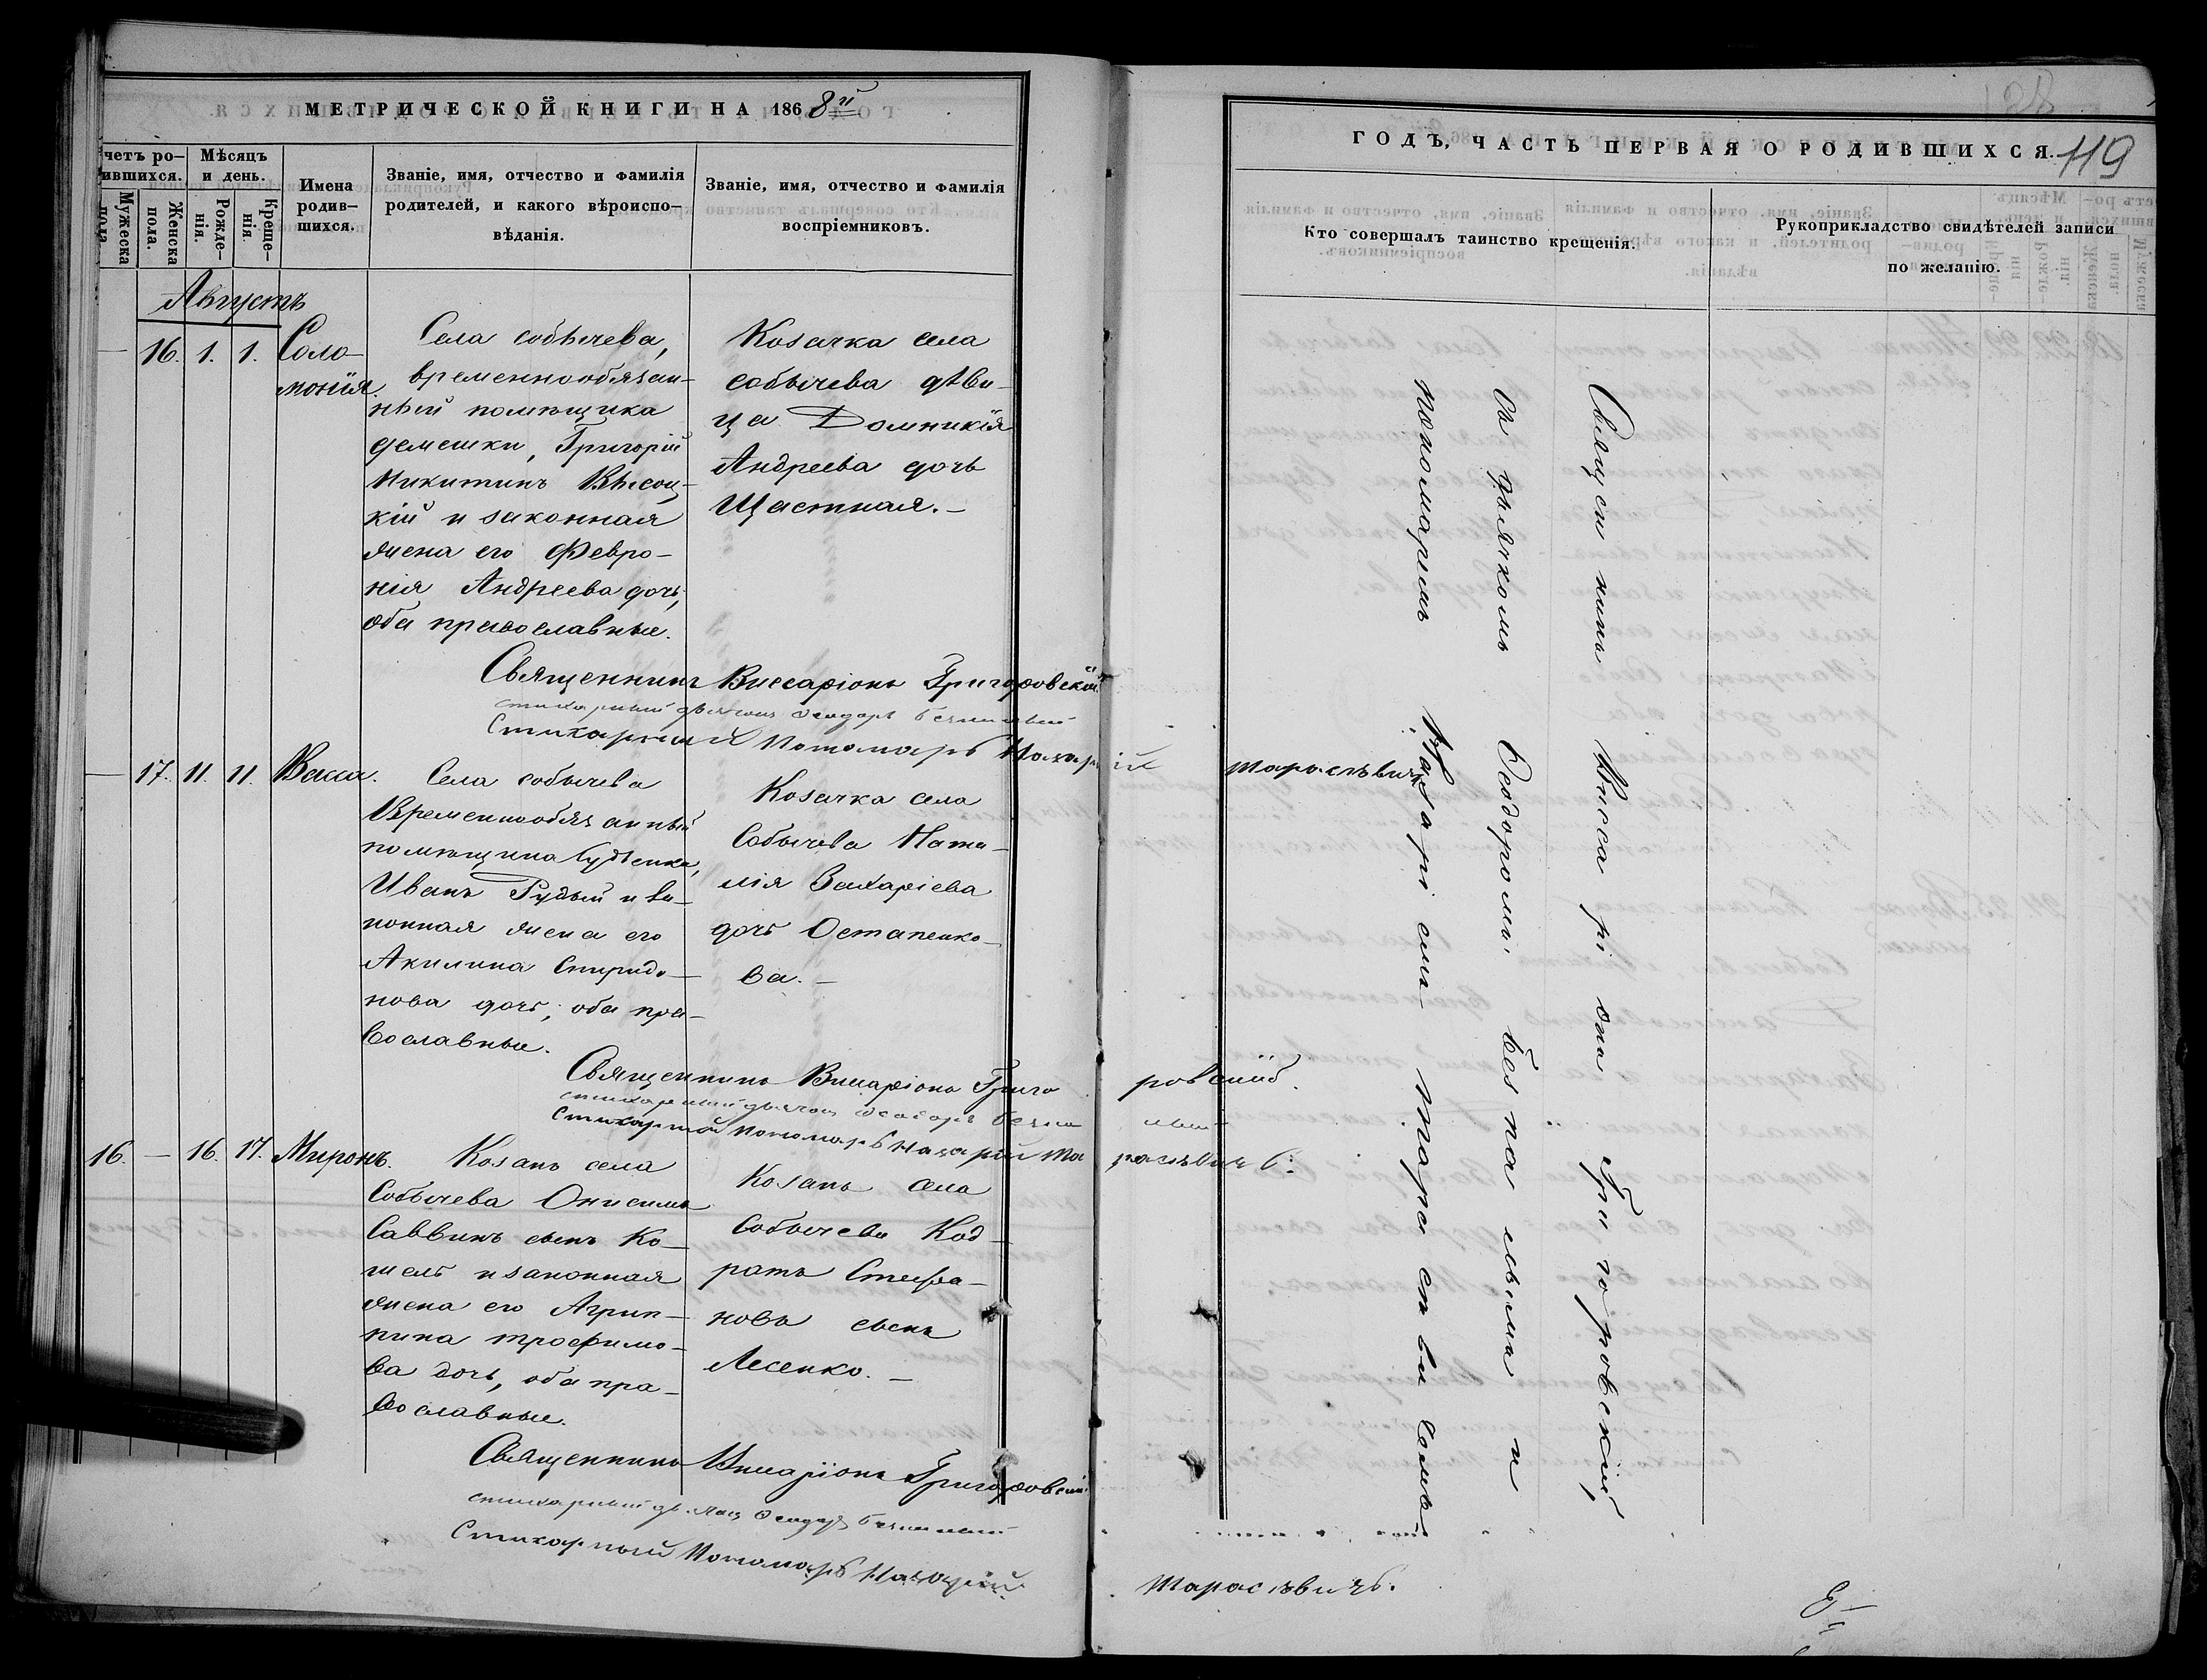 МЕТРИЧЕСКОЙ КНИГИ НА 1868й
четъ ро-
ившихся.
Мужеска
пола.
Женска
пола.
Мѣсяцъ
и день.
Рожде-
нія.
Креще-
нія.
Имена
родив-
шихся.
Званіе, имя, отчество и фамилія
родителей, и какого вѣроиспо-
вѣданія.
Званіе, имя, отчество и фамилія
воспріемниковъ.
Августъ
— 16. 1. 1. Соло-
монія.
Села собычева,
временнообязан-
ный помѣщика
демешки, Григорій
Никитинъ Высоц-
кій и законная
жена его Февро-
нія Андреева дочь,
оба православные.
Козачка села
собычева дѣви-
ца Домникія
Андреева дочь
Щастная.—
Священникъ Виссаріонъ Григоровскій
стихарный дьячокъ Феодоръ Безпалый
Стихарный Пономарь Назарій Тарасѣвичъ
— 17. 11. 11. Васса.
Села собычева
Временнообязанный
помѣщика
Иванъ Рудый и за-
конная жена его
Акилина Спиридо-
нова дочь, оба пра-
вославные.
Козачка села
Собычева Ната-
лія Захаріева
дочь Остапенко-
ва.—
Священникъ Виссаріонъ Григоровскій.
стихарный дьячокъ Феодоръ Безпалый
Стихарный Пономарь Назарій Тарасѣвичъ.
16. — 16. 17. Миронъ.
Козакъ села
Собычева Онисимъ
Саввинъ сынъ Ко-
шель и законная
жена его Агрип-
пина трофимо-
ва дочь, оба пра-
вославные.
Козакъ села
Собычева Код-
ратъ Стефа-
новъ сынъ
Лесенко.—
Священникъ Виссаріонъ Григоровскій
стихарный дьячокъ Феодоръ Безпалый
Стихарный Пономарь Назарій Тарасѣвичъ.
119
ГОДЪ, ЧАСТЬ ПЕРВАЯ О РОДИВШИХСЯ.
Кто совершалъ таинство крещенія.
Рукоприкладство свидѣтелей записи
по желанію.
Священникъ Виссаріонъ Григоровскій,
съ дьячкомъ Феодоромъ Безпалымъ и
пономаремъ Назаріемъ Тарасевичемъ.